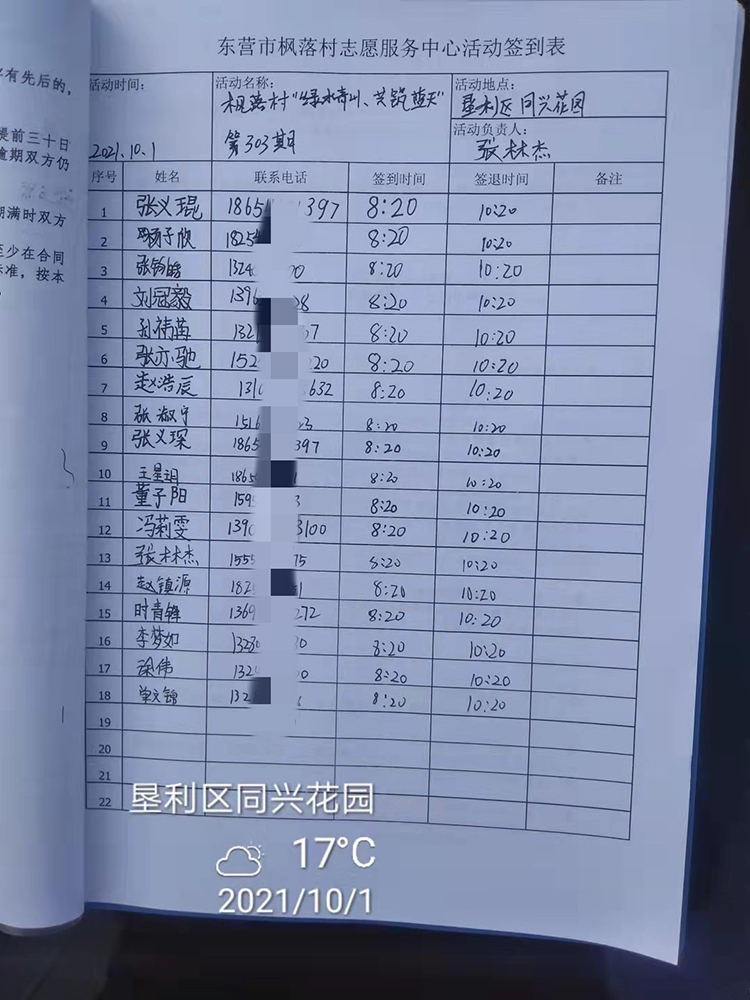 序有先后的,
提前三十日
逾期双方仍
期满时双方
至少在合同
标准,按本
东营市枫落村志愿服务中心活动签到表
活动时间: 2021.10.1
活动名称: 枫落村"绿水青山、共筑蓝天" 第303期
活动地点: 垦利区同兴花园
活动负责人: 张林杰
序号 姓名 联系电话 签到时间 签退时间 备注
1 张义琨 1865 1397 8:20 10:20
2 杨子欣 1825 8:20 10:20
3 张 1324 00 8:20 10:20
4 刘冠毅 1396 28 8:20 10:20
5 孙祎苒 132 37 8:20 10:20
6 张亦驰 152 220 8:20 10:20
7 赵浩辰 131 632 8:20 10:20
8 张淑宁 1516 23 8:20 10:20
9 张义琛 1865 397 8:20 10:20
10 王星玥 1865 8:20 10:20
11 董子阳 159 3 8:20 10:20
12 冯莉雯 1390 3100 8:20 10:20
13 张林杰 1555 75 8:20 10:20
14 赵镇源 182 1 8:20 10:20
15 时青锋 1369 272 8:20 10:20
16 李梦如 13280 80 8:20 10:20
17 徐伟 132 00 8:20 10:20
18 单文锦 132 6 8:20 10:20
19
20
21
22
垦利区同兴花园
17°C
2021/10/1